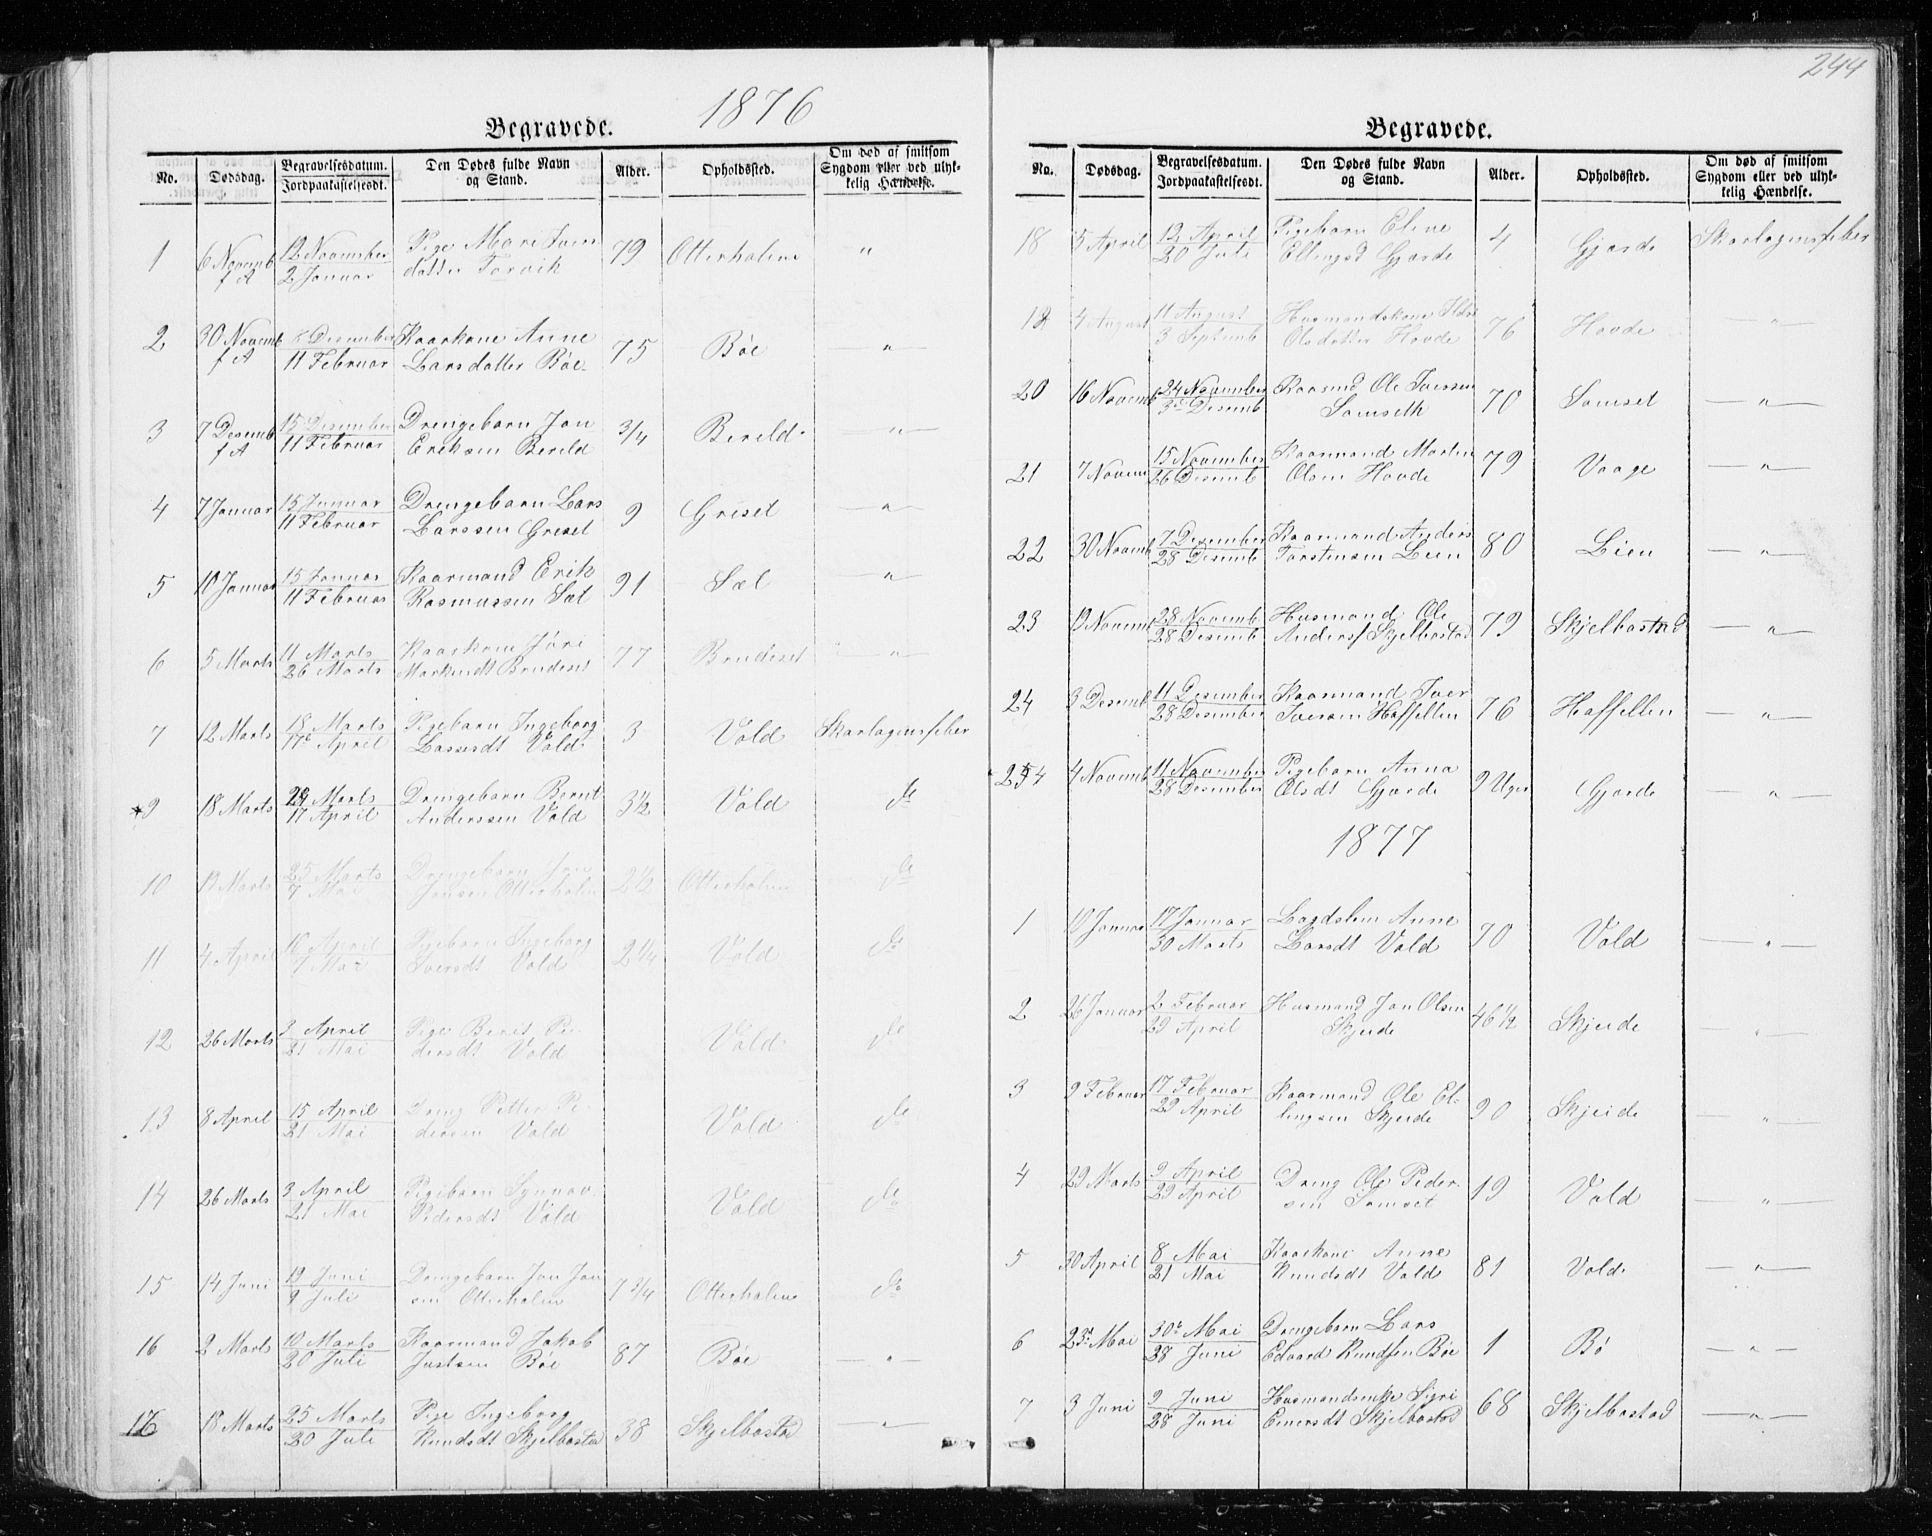 244
1876
Begravede.
No. Dødsdag. Begravelsesdatum. Jordpaakastelsesdt. Den Dødes fulde Navn og Stand. Alder. Opholdssted. Om død af smitsom Sygdom eller ved ulykkelig Hændelse.
1 6 Novemb f A 12 November 2 Januar Pige Mari datter Torvik 79 Otterholm "
2 30 Novemb f A Desember 11 Februar Kaarkone Anne Larsdatter Bøe 75 Bøe "
3 7 Desemb f A 15 Desember 11 Februar Drengebarn Jon Eriksen Bereld 3/4 Bereld "
4 7 Januar 15 Januar 11 Februar Drengebarn Lars Larssen Griset 9 Griset "
5 10 Januar 15 Januar 11 Februar Kaarmand Erik Rasmussen Sæt 91 Sæt "
6 5 Marts 11 Marts 26 Marts Kaarkone Jøri Brudeset 77 Brudeset "
7 12 Marts 18 Marts 17 April Pigebarn Ingeborg Lassesdt Vold 3 Vold Skarlagensfeber
9 18 Marts 29 Marts 17 April Drengebarn Bernt Anderssen Vold 3½ Vold do
10 19 Marts 25 Marts 7 Mai Drengebarn Jens Jonsen Otterholm 2½ Otterholm do
11 4 April 10 April 7 Mai Pigebarn Ingeborg Iversdt Vold 2¼ Vold do
12 26 Marts 2 April 21 Mai Pige Berit Pedersdt Vold Vold do
13 8 April 15 April 21 Mai Dreng Petter Pedersen Vold Vold do
14 26 Marts 3 April 21 Mai Pigebarn Synnøv Pedersdt Vold Vold do
15 14 Juni 19 Juni 9 Juli Drengebarn Jon Jonsen Otterholm 7 3/4 Otterholm do
16 2 Marts 10 Marts 20 Juli Kaarmand Jakob Justsen Bøe 87 Bøe "
17 18 Marts 25 Marts 20 Juli Pige Ingeborg Knudsdt Skjelbostad 38 Skjelbostad "
Begravede.
No. Dødsdag. Begravelsesdatum. Jordpaakastelsesdt. Den Dødes fulde Navn og Stand. Alder. Opholdssted. Om død af smitsom Sygdom eller ved ulykkelig Hændelse.
18 5 April 12 April 20 Juli Pigebarn Eline Ellingsd Gjærde 4 Gjærde Skarlagensfeber
19 4 August 11 August 3 Septemb Husmandskone Olsdatter Hovde 76 Hovde "
20 16 Novemb 24 November 3 Desemb Kaarmd Ole Iverssen Somseth 70 Somset "
21 7 Novem 15 November 26 Desemb Kaarmand Martin Olsen Hovde 79 Vaage "
22 30 Novemb 7 Desember 28 Desemb Kaarmand Anders Torstensen Lien 80 Lien "
23 19 Novemb 28 Novemb 28 Desemb Husmand Ole Andersf Skjelbostad 79 Skjelbostad "
24 3 Desemb 11 Desember 28 Desember Kaarmand Iver Iversen Haffellen 76 Haffellen "
25 4 Novemb 11 November 28 Desember Pigebarn Anna Olsdt Gjærde 9 Uger Gjærde "
1877
1 10 Januar 17 Januar 30 Marts Lægdslem Anne Larsdt Vold 70 Vold "
2 26 Januar 2 Februar 29 April Husmand Jon Olsen Skjeide 46½ Skjeide "
3 9 Februar 17 Februar 29 April Kaarmand Ole Ellingsen Skjeide 90 Skjeide "
4 29 Marts 9 April 29 April Dreng Ole Pedersen Somset 19 Vold "
5 30 April 8 Mai 21 Mai Kaarkone Anne Knudsdt Vold 81 Vold "
6 23 Mai 30 Mai 28 Juni Drengebarn Lars Edvard Knudsen Bøe 1 Bø "
7 3 Juni 9 Juni 28 Juni Husmandsenke Sigri Einersdt Skjelbostad 68 Skjelbostad "